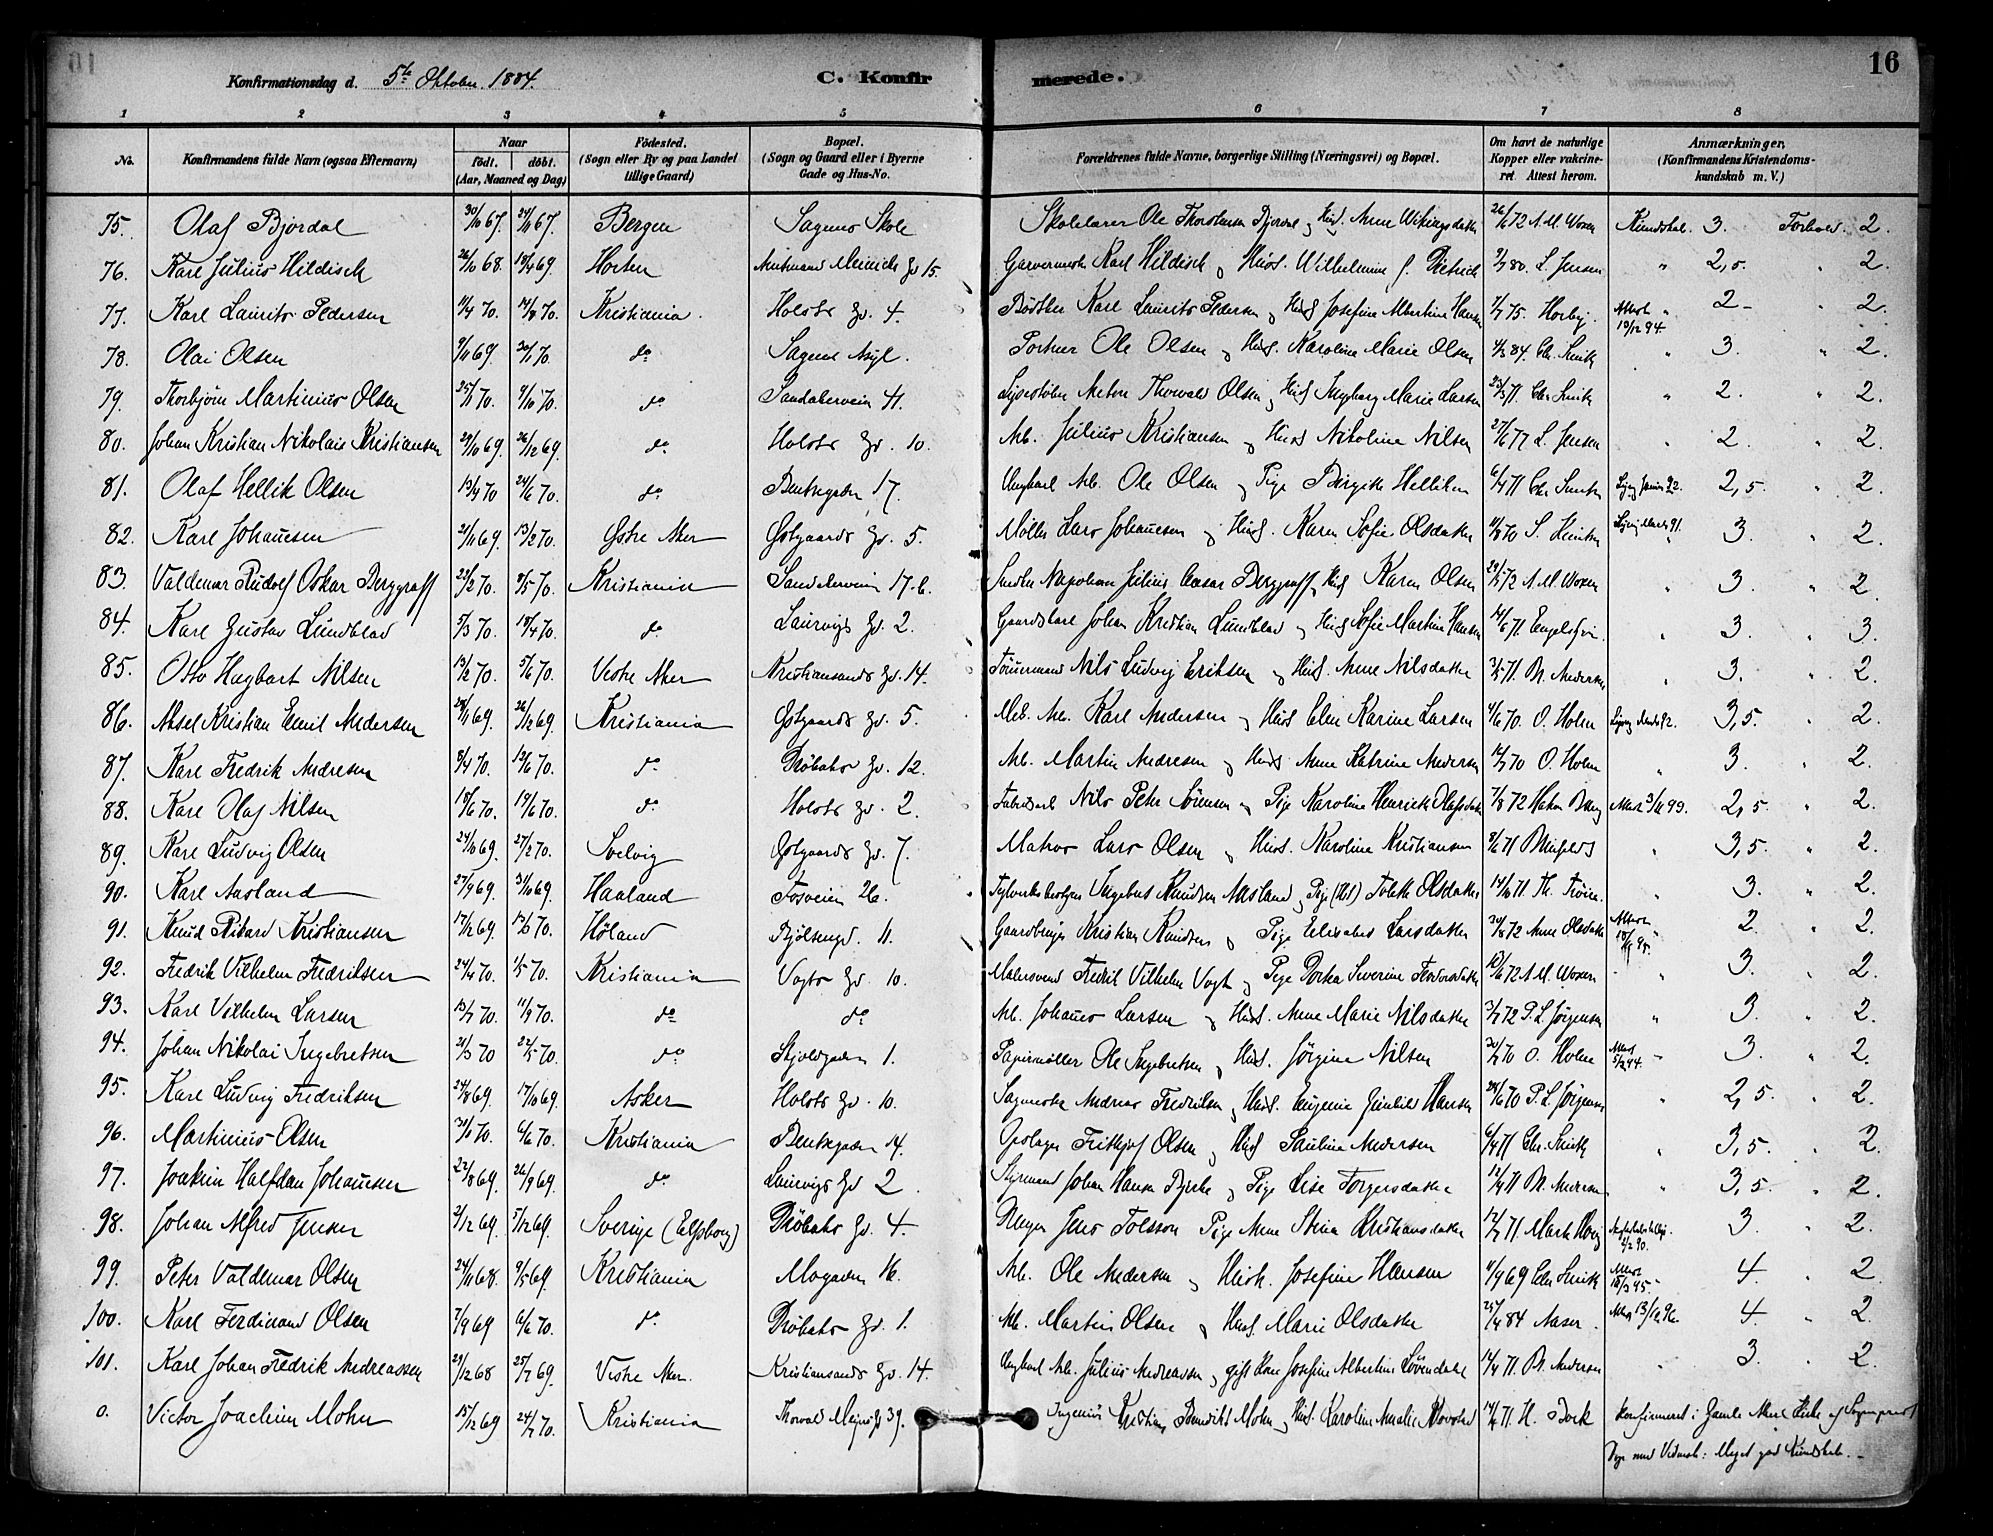 16
Konfirmationsdag d. 5te Oktober 1884. C. Konfir merede.
1 2 3 4 5 6 7 8
No. Konfirmandens fulde Navn (ogsaa Efternavn) Naar født. døbt. (Aar, Maaned og Dag) Fødested. (Sogn eller By og paa Landet tillige Gaard) Bopæl. (Sogn og Gaard eller i Byerne Gade og Hus-No. Forældrenes fulde Navne, borgerlige Stilling (Næringsvei) og Bopæl. Om havt de naturlige Kopper eller vakcineret. Attest herom. Anmærkninger, (Konfirmandens Kristendomskundskab m. V.)
75. Olaf Bjørdal 30/10 67. 24/11 67. Bergen Sagenes Skole Skolelærer Ole Thorstensen Bjørdal og Hust. Anne Wikingsdatter 26/6 72 A. M. Woxen Kundskab. 3. Forhold. 2.
76. Karl Julius Hildisch 26/10 68. 18/4 69. Horten Amtmand Meinichs Gd. 15. Garvermester Karl Hildisch og Hust. Wilhelmine f. Dietrich 9/7 80. L. Jensen " 2,5. " 2.
77. Karl Laurits Pedersen 11/4 70. 14/8 70. Kristiania. Holsts Gd. 4. Bødtker Karl Laurits Pedersen og Hust Josefine Albertine Hansen 1/7 75. Horbye. Attest 10/12 94. 2 - " 2.
78. Olai Olsen 9/11 69. 30/1 70. do Sagene Asyl. Portner Ole Olsen og Hust. Karoline Marie Olsen 4/3 84. Chr. Smith " 3. " 2.
79. Thorbjørn Martinius Olsen 25/1 70. 9/10 70. do Sandakerveien 41. Anton Thorvald Olsen og Hust Ingeborg Marie Larsen 23/3 71. Chr. Smith " 2. " 2.
80. Johan Kristian Nikolais Kristiansen 29/10 69. 26/12 69. do Holsts Gd. 10. Arb. Julius Kristiansen og Hust Nikoline Nilsen 27/6 77 L. Jensen " 2. " 2.
81. Olaf Hellik Olsen 13/4 70 24/6 70. do Bentsegaden 17. Ungkarl Arb. Ole Olsen og Pige Birgitte Helliksen 6/4 71 Chr. Smith 2,5. " 2.
82. Karl Johansen 21/11 69. 13/2 70. Østre Aker Østgaards Gd. 5. Møller Lars Johannesen og Hust. Karen Sofie Olsdatter 11/8 70 3. 2.
83. Valdemar Rudolf Oskar Berggraff 22/2 70. 9/5 70. Kristiania Sandakerveien 17.b. Napoleon Julius Cæsar Berggraff og Hust Karen Olsen 29/5 72 A. M. Woxen " 3. " 2.
84. Karl Gustav Lundblad 5/3 70. 18/4 70. do Laurvigs Gd. 2. Gaardskarl Johan Kristian Lundblad og Hust Sofie Martine Hansen 14/6 71. " 3. " 3.
85. Otto Hagbart Nilsen 13/2 70. 5/6 70. Vestre Aker Kristiansands Gd. 14. Tømmermand Nils Ludvig Eriksen og Hust Anne Nilsdatter 3/5 71. M. Andersen " 3. " 2.
86. Aksel Kristian Emil Andersen 28/11 69. 26/12 69. Kristiania Østgaards Gd. 5. Arb. Karl Andersen og Hust Elen Karine Larsen 4/6 70. O. Holm 3,5. " 2.
87. Karl Fredrik Andresen 8/4 70. 13/6 70. do Drøbaks Gd. 12. Arb. Martin Andresen og Hust Anne Katrine Andersen 14/7 70 O. Holm " 3. " 2.
88. Karl Olaf Nilsen 18/6 70. 19/6 70. do Holsts Gd. 2. Nils Peter Sørensen og Pige Karoline Henriette Olafsdatter 7/8 72 Attest 3/11 99. 2,5 " 2.
89. Karl Ludvig Olsen 24/10 69. 27/2 70. Svelvig Østgaards Gd. 7. Matros Lars Olsen og Hust. Karoline Kristiansen 8/6 71 " 3,5. " 2.
90. Karl Aasland 27/9 69. 31/10 69. Haaland Fosveien 26. Ingebret Knudsen Aasland og Pige Tolette Olsdatter 14/6 71. Th. " 3. " 2.
91. Knud Rikard Kristiansen 17/12 69. 13/3 70. Høland Bjølsengd. 11. Gaardbruger Kristian Knudsen og Pige Elisabet Larsdatter 30/8 72 Anne Olsdatter Attest 95. 2. " 2.
92. Fredrik Vilhelm Fredriksen 24/4 70. 1/5 70. Kristiania Vogts Gd. 10. Malersvend Fredrik Vilhelm Vogt og Pige Dorthea Severine 10/6 72 A. M. Woxen " 3. 2.
93. Karl Vilhelm Larsen 13/7 70. 11/9 70. do do Arb. Johannes Larsen og Hust. Anne Marie Nilsdatter 3/7 72 P. L. Jørgensen " 3. " 2.
94. Johan Nikolai Ingebretsen 21/3 70 22/5 70. do Skjoldgaden 1. Papirmøller Ole Ingebretsen og Hust. Jørgine Nilsen 20/7 70 O. Holm Attest 5/12 94. 3. " 2.
95. Karl Ludvig Fredriksen 24/8 69. 17/10 69. Asker Holsts Gd. 10. Sagmester Andreas Fredriksen og Hust. Eugenie Gunhild Hansen 29/6 70 P. L. Jørgensen " 2,5. " 2.
96. Martinius Olsen 30/1 70. 6/6 70. Kristiania Bentsegaden 14. Opslager Frithjof Olsen og Hust Pauline Andersen 6/4 71 Chr. Smith " 3,5. " 2.
97. Joakim Halfdan Johannesen 22/8 69. 26/9 69. do Laurvigs Gd 2. Styrmand Johan Hansen Bjerke og Pige Lise Torgersdatter 12/4 71 M. Andersen " 3,5. " 2.
98. Johan Alfred Jensen 2/12 69. 5/12 69. Sverige (Elfsborg) Drøbaks Gd. 4. Jens Tolsson Pige Anne Stina Kristiansdatter 12/7 71. 2/2 90. 3. " 2.
99. Peter Valdemar Olsen 24/11 68. 9/5 69. Kristiania Mogaden 16. Arb. Ole Andersen og Hust. Josefine Hansen 11/9 69 Chr. Smith Attest 18/3 95. 4. " 2.
100. Karl Ferdinand Olsen 7/9 69 6/6 70. do Drøbaks Gd. 1. Arb. Martin Olsen og Hust. Marie Olsdatter 25/4 84 Aaser Attest 13/12 96. 4. " 2.
101. Karl Johan Fredrik Andreassen 29/12 68 25/7 69. Vestre Aker. Kristiansands Gd. 14. Ungkarl Arb. Julius Andreassen og gift Kone Josefine Albertine Løvendahl 14/4 71. M. Andersen " 3. " 2.
0. Victor Joachim Mohn 15/12 69 24/7 70. Kristiania Thorvald Meiers Gd 39. Ingeniør Kristian Benedikt Mohn og Hust. Karoline Amalie 14/6 71. H. Bock Konfirmeret i Gamle Akers Kirke af Sognepræst
med Vidnesb. Meget god Kundskab. -